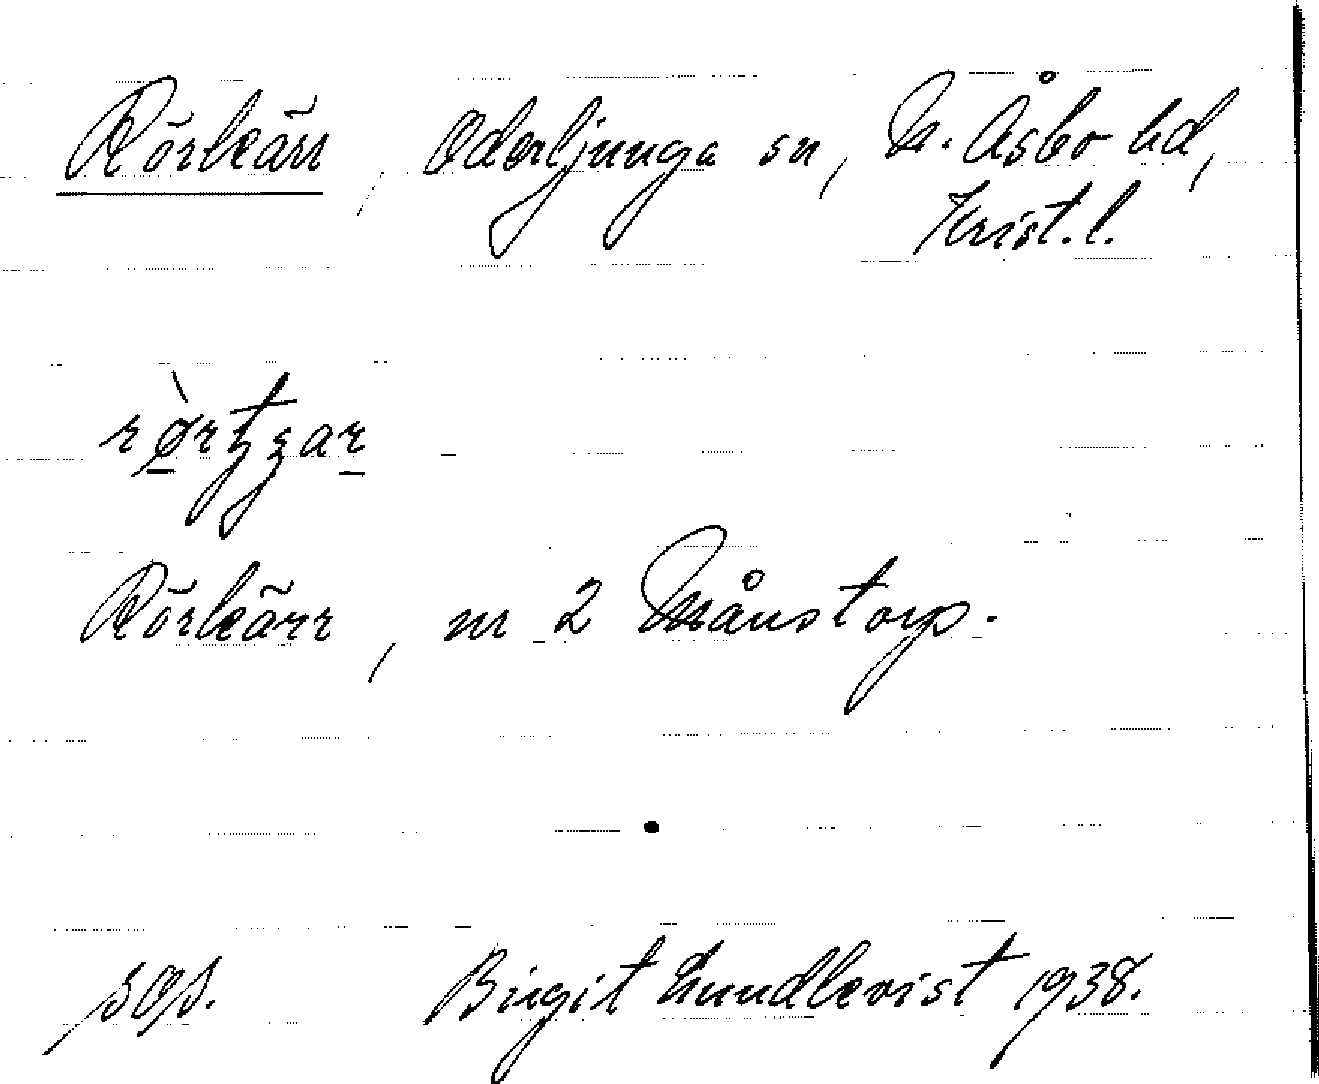 Rörkärr, Oderljunga sn, N. Åsbo hd,
Krist. l.
Rörkärr, nr 2 Månstorp.
Birgit Lundkvist 1938.